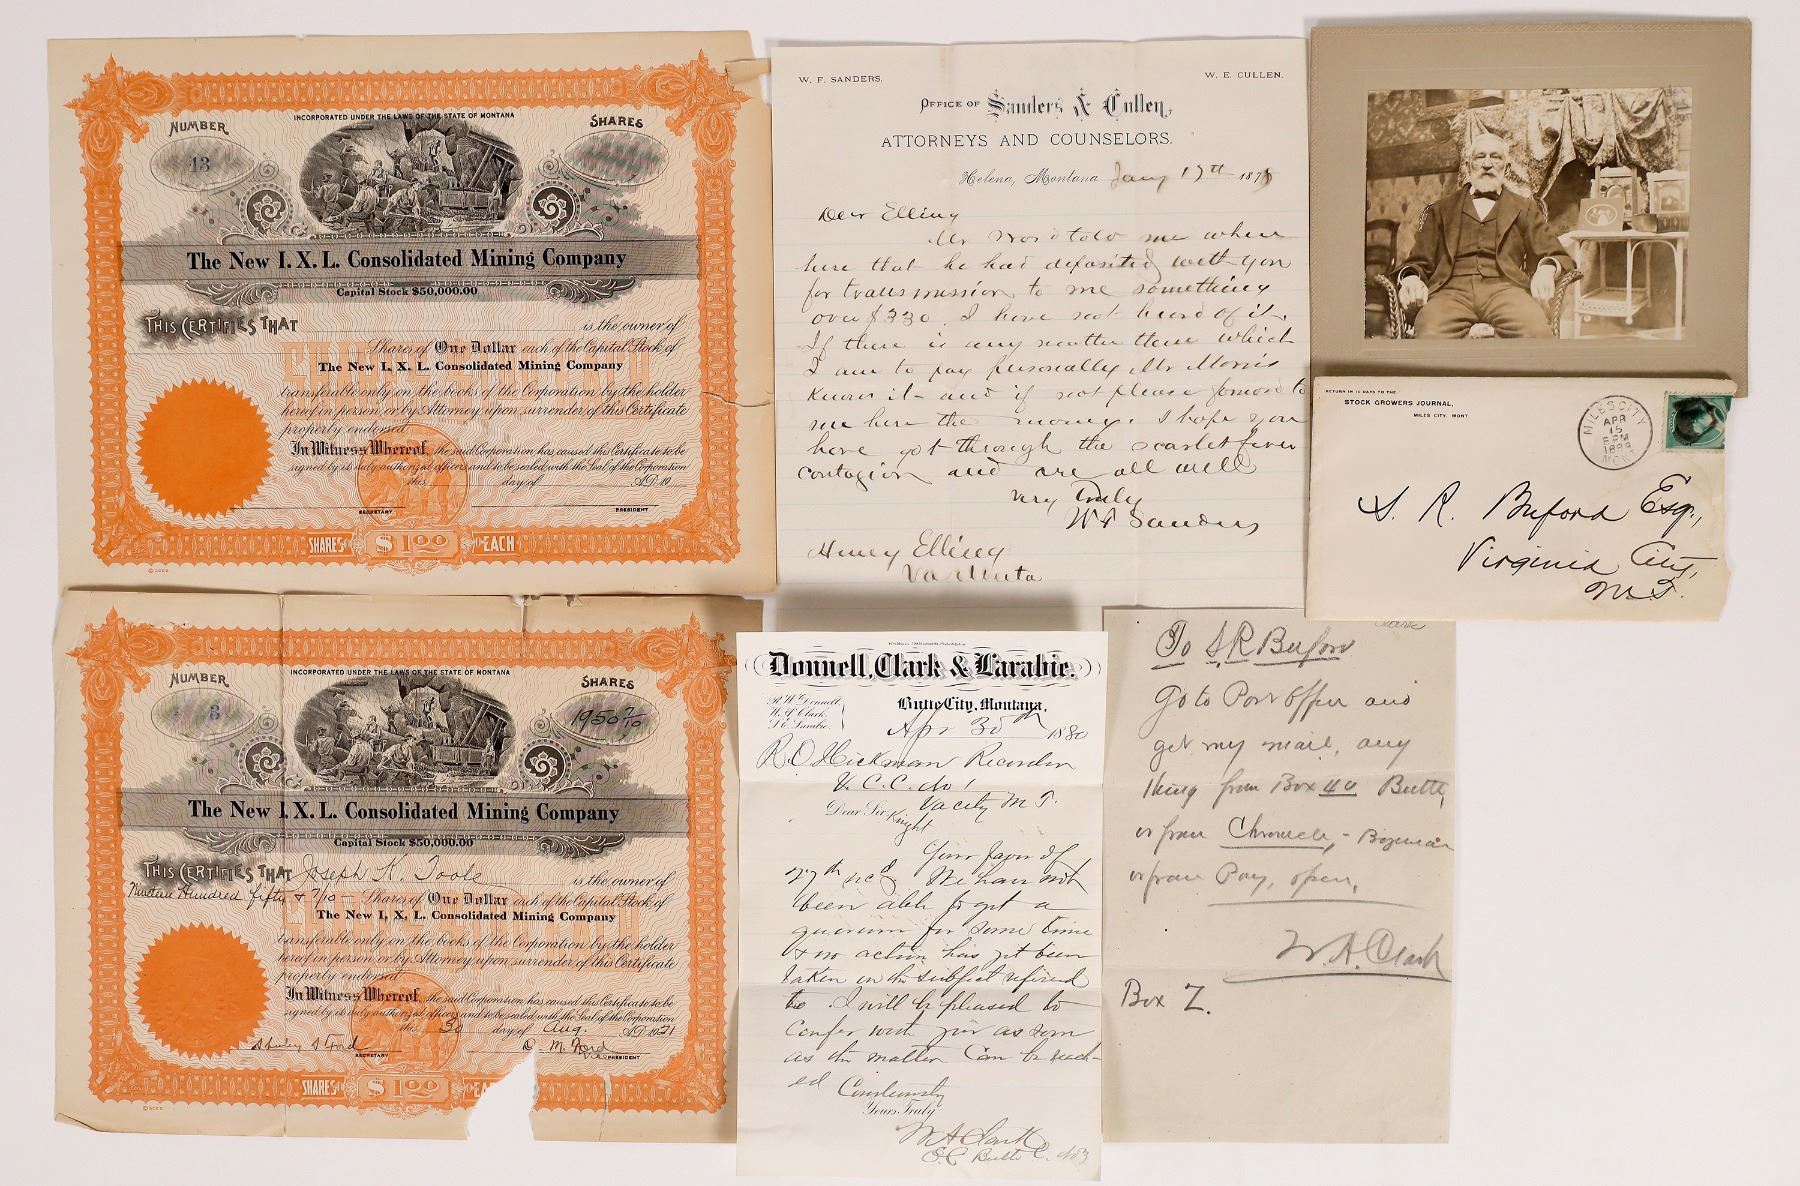 INCORPORATED UNDER THE LAWS OF THE STATE OF MONTANA
NUMBER
SHARES
13
The New I. X. L. Consolidated Mining Company
Capital Stock $50,000.00
THIS CERTIFIES THAT
is the owner of
Shares of One Dollar each of the Capital Stock of
The New I. X. L. Consolidated Mining Company
transferable only on the books of the Corporation by the holder
hereof in person or by Attorney upon surrender of this Certificate
properly endorsed.
In Witness Whereof, the said Corporation has caused this Certificate to be
signed by its duly authorized officers and to be sealed with the Seal of the Corporation
this day of A.D. 19
SECRETARY
PRESIDENT
SHARES $1.00 EACH
INCORPORATED UNDER THE LAWS OF THE STATE OF MONTANA
NUMBER
SHARES
3
1950 7/10
The New I. X. L. Consolidated Mining Company
Capital Stock $50,000.00
THIS CERTIFIES THAT Joseph K. Toole is the owner of
Nineteen Hundred fifty & 7/10 Shares of One Dollar each of the Capital Stock of
The New I. X. L. Consolidated Mining Company
transferable only on the books of the Corporation by the holder
hereof in person or by Attorney upon surrender of this Certificate
properly endorsed.
In Witness Whereof, the said Corporation has caused this Certificate to be
signed by its duly authorized officers and to be sealed with the Seal of the Corporation
this 30 day of Aug. A.D. 1921
Ford
D. M. Ford
SECRETARY
Vice PRESIDENT
SHARES $1.00 EA
W. F. SANDERS.
W. E. CULLEN.
OFFICE OF Sanders & Cullen,
ATTORNEYS AND COUNSELORS.
Helena, Montana Jany 17th 187
Dear Elling
Mr Word told me when
here that he had deposited with you
for transmission to me something
over $330. I have not heard of it.
If there is any matter there which
I am to pay personally Mr Morris
knows it - and if not please forward to
me here the money. I hope you
have got through the scarlet fever
contagion and are all well
Very Truly
W F Sanders
Henry Elling
Va Minta
RETURN IN 10 DAYS TO THE
STOCK GROWERS JOURNAL,
MILES CITY, MONT.
MILES CITY
APR
15
5 PM
1889
MONT
S. R. Buford Esq.,
Virginia City,
M.T.
Donnell, Clark & Larabie.
R.W. Donnell,
W.A. Clark,
S.E. Larabie.
Butte City, Montana,
Apr 30th 1880
R. O. Hickman Recorder
V. C. C. No 1
Va City M. T.
Dear Sir Knight
Your favor of
27th recd. We have not
been able to get a
quorum for some time
& no action has yet been
taken in the subject referred
to. I will be pleased to
confer with you as soon
as the matter can be reach-
ed Courteously
Yours Truly
W A Clark
E. C. Butte C. No 3
To S, R Buford
Go to Post Office and
get my mail, any
thing from Box 40 Butte,
or from Chronicle, - Bozeman
or from Pony, open,
W. A. Clark
Box 7.